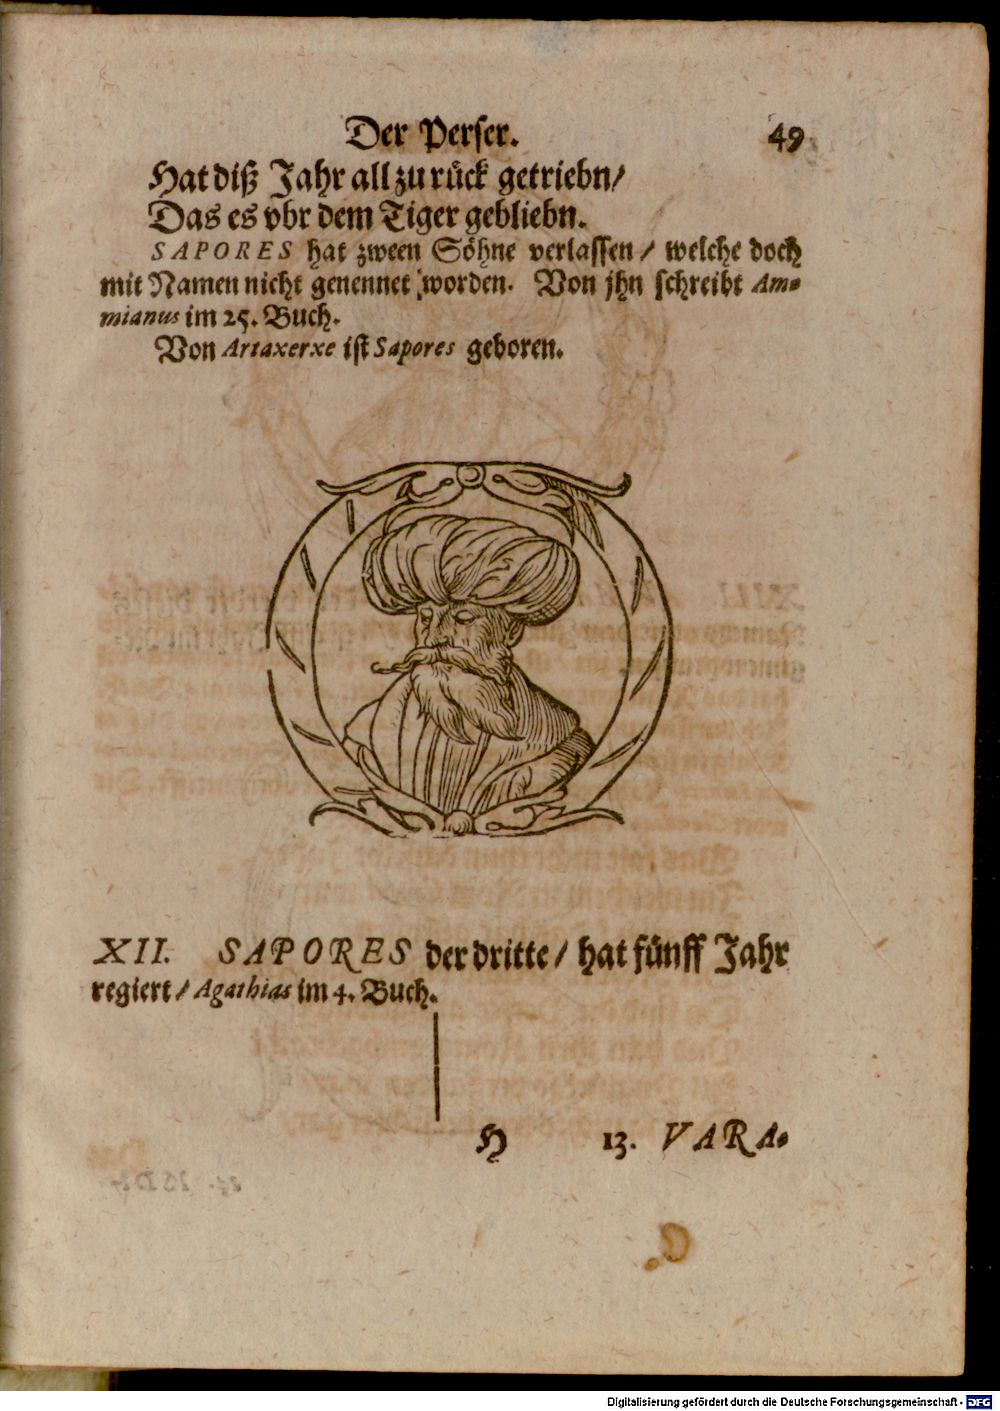 Der Perser. 49
Hat diß Jahr all zu rück getriebn/
Das es vbr dem Tiger gebliebn.
SAPORES hat zween Söhne verlassen/ welche doch
mit Namen nicht genennet worden. Von jhn schreibt Am-
mianus im 25. Buch.
Von Artaxerxe ist Sapores geboren.
XII. SAPORES der dritte/ hat fünff Jahr
regiert/ Agathias im 4. Buch.
H 13. VARA-
Digitalisierung gefördert durch die Deutsche Forschungsgemeinschaft - DFG